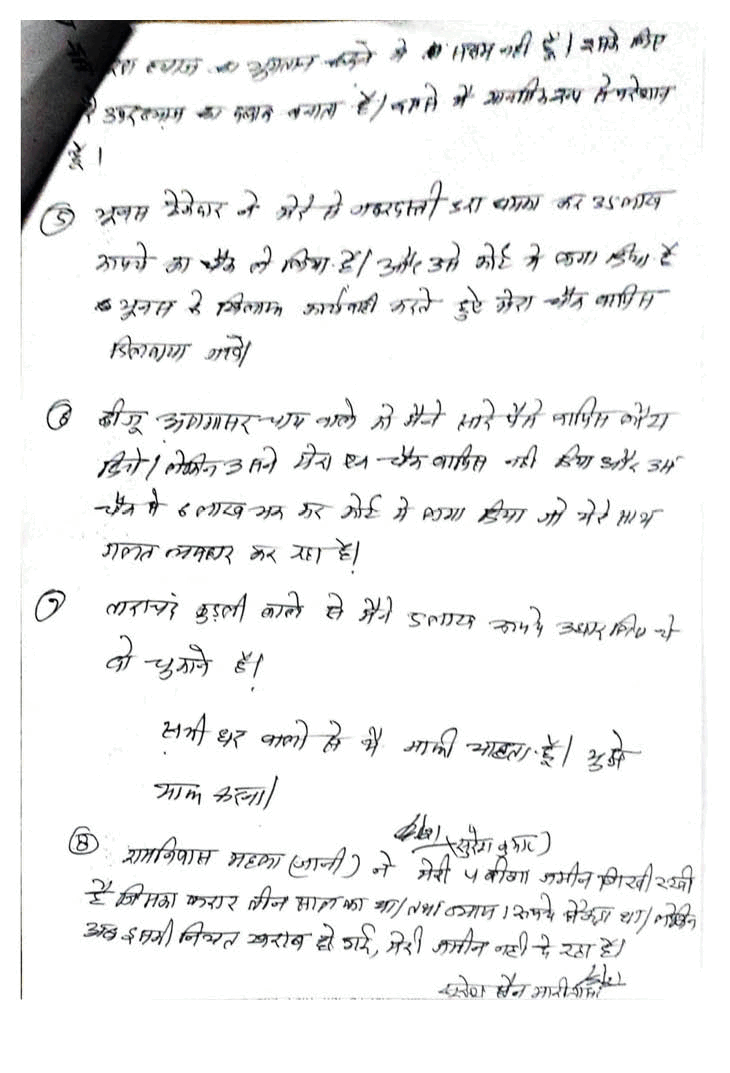 का भुगतान करने में सक्षम नहीं हूँ। इसके लिए
का दबाव बनाता है। जिससे मैं मानसिक रूप से परेशान
हूँ।
⑤ पूनम ठेकेदार ने मेरे से जबरदस्ती डरा धमका कर 35 लाख
रूपये का चैक ले लिया है। और उसे कोर्ट में लगा दिया है
पूनम के खिलाफ कार्यवाही करते हुऐ मेरा चैक वापिस
दिलवाया जावे।
⑥ बीजू चाय वाले को मैने सारे पैसे वापिस लौटा
दिये। लेकिन उसने मेरा एक चैक वापिस नही दिया और उस
चैक में 6 लाख भर कर कोर्ट में लगा दिया जो मेरे साथ
गलत व्यवहार कर रहा है।
⑦ ताराचंद कुड़ली वाले से मैंने 5 लाख रूपये उधार लिए थे
वो चुकाने है।
सभी घर वालो से मै माफी चाहता हूँ। मुझे
माफ करना।
(सुरेश कुमार)
⑧ रामनिवास महला (जानी) ने मेरी 4 बीघा जमीन गिरवी रखी
है जिसका करार तीन साल का था। तथा ब्याज 1 रूपये सैकड़ा था। लेकिन
अब इसकी नियत खराब हो गई, मेरी जमीन नही दे रहा है।